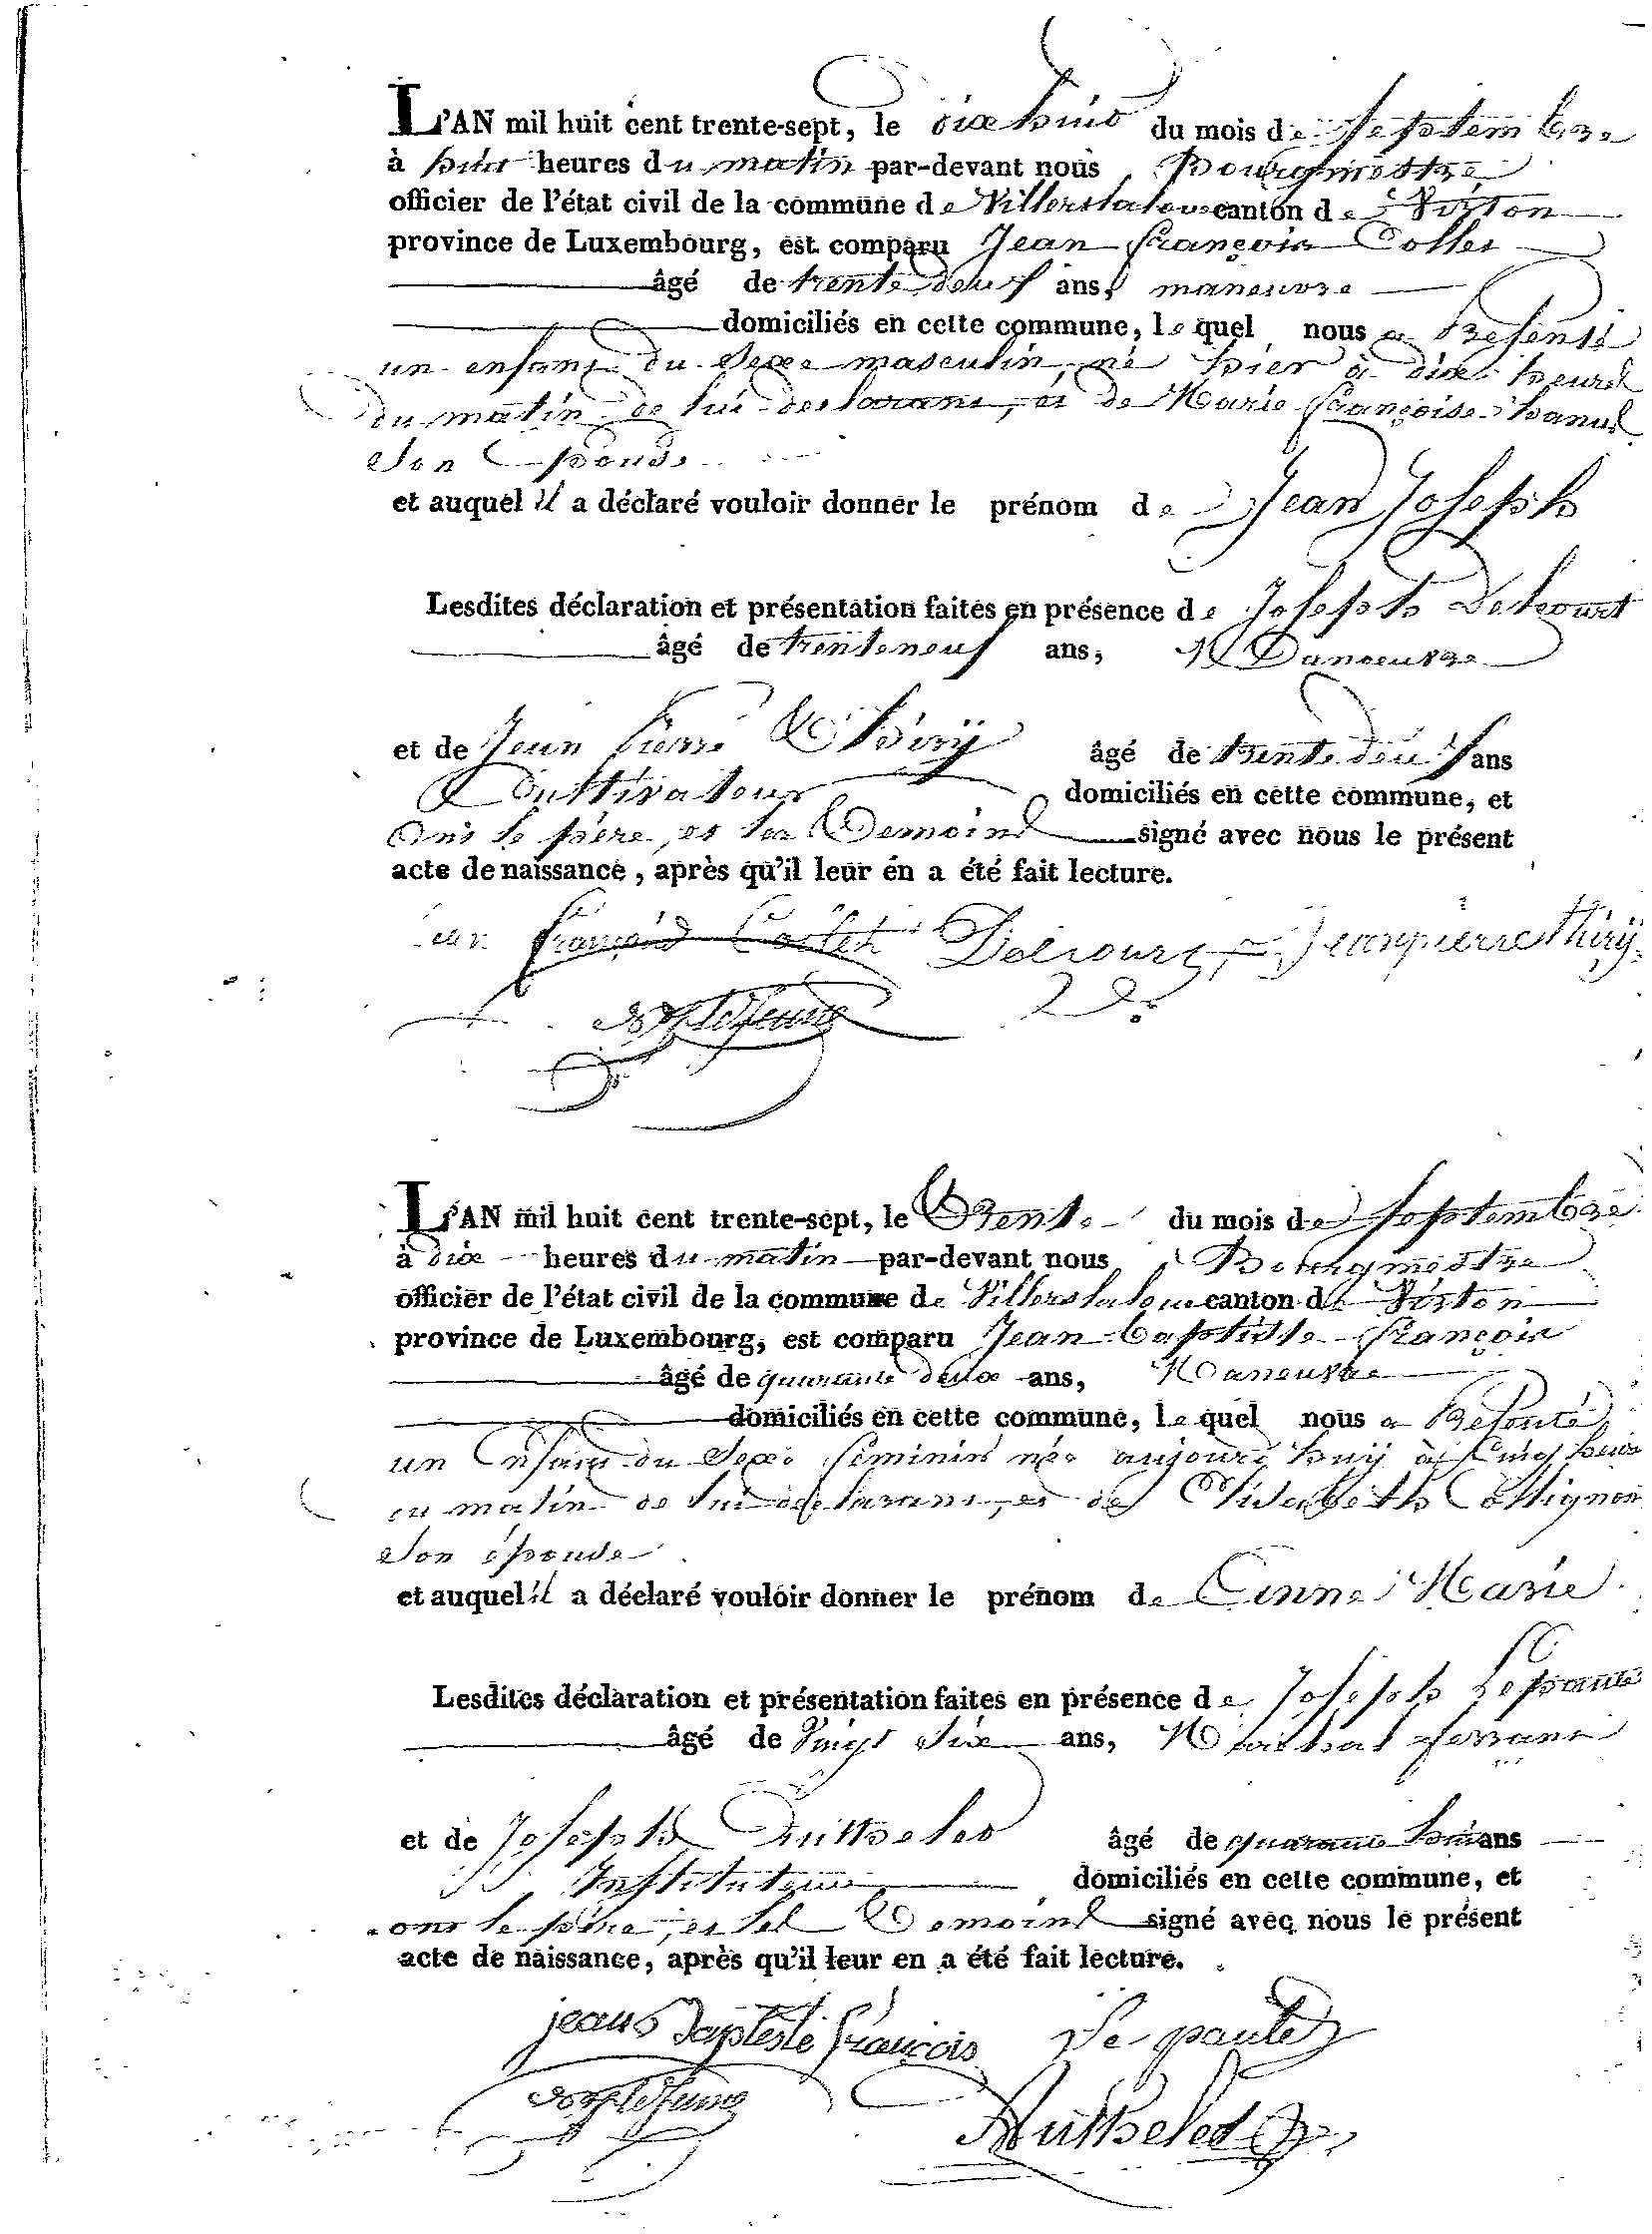 L'AN mil huit cent trente-sept, le dix huit du mois de Septembre
à huit heures du matin par-devant nous Bourgmestre
officier de l'état civil de la commune de Villerslaloue canton de Virton
province de Luxembourg, est comparu Jean françois Collet
âgé de trente deux ans, maneuvre
domiciliés en cette commune, lequel nous a Présenté
un enfant du Sexe masculin né hier à dix heures
du matin de lui declarant, et de Marie françoise hanus
Son Epouse
et auquel il a déclaré vouloir donner le prénom de Jean Joseph
Lesdites déclaration et présentation faites en présence de Joseph Delcourt
âgé de trente neuf ans, Manoeuvre
et de Jean Pierre Thiry âgé de trente deux ans
Cultivateur domiciliés en cette commune, et
Ont le père, et les Temoins signé avec nous le présent
acte de naissance, après qu'il leur en a été fait lecture.
Jean François Collet Delcourt Jeanpierre Thirÿ
L'AN mil huit cent trente-sept, le Trente du mois de Septembre
à dix heures du matin par-devant nous Bourgmestre
officier de l'état civil de la commune de Villerslaloue canton de Virton
province de Luxembourg, est comparu Jean baptiste françois
âgé de quarante deux ans, Maneuvre
domiciliés en cette commune, lequel nous a Présenté
un Enfant du Sexe feminin née aujourd'huy à Cinq heures
du matin de lui declarant, et de Elisabeth Collignon
Son épouse
et auquel il a déclaré vouloir donner le prénom de Anne Marie
Lesdites déclaration et présentation faites en présence de Joseph Lepante
âgé de Vingt Six ans, Marichal ferrant
et de Joseph âgé de quarante huit ans
Instituteur domiciliés en cette commune, et
ont le père, et les Temoins signé avec nous le présent
acte de naissance, après qu'il leur en a été fait lecture.
jean Bapteste françois Le pante